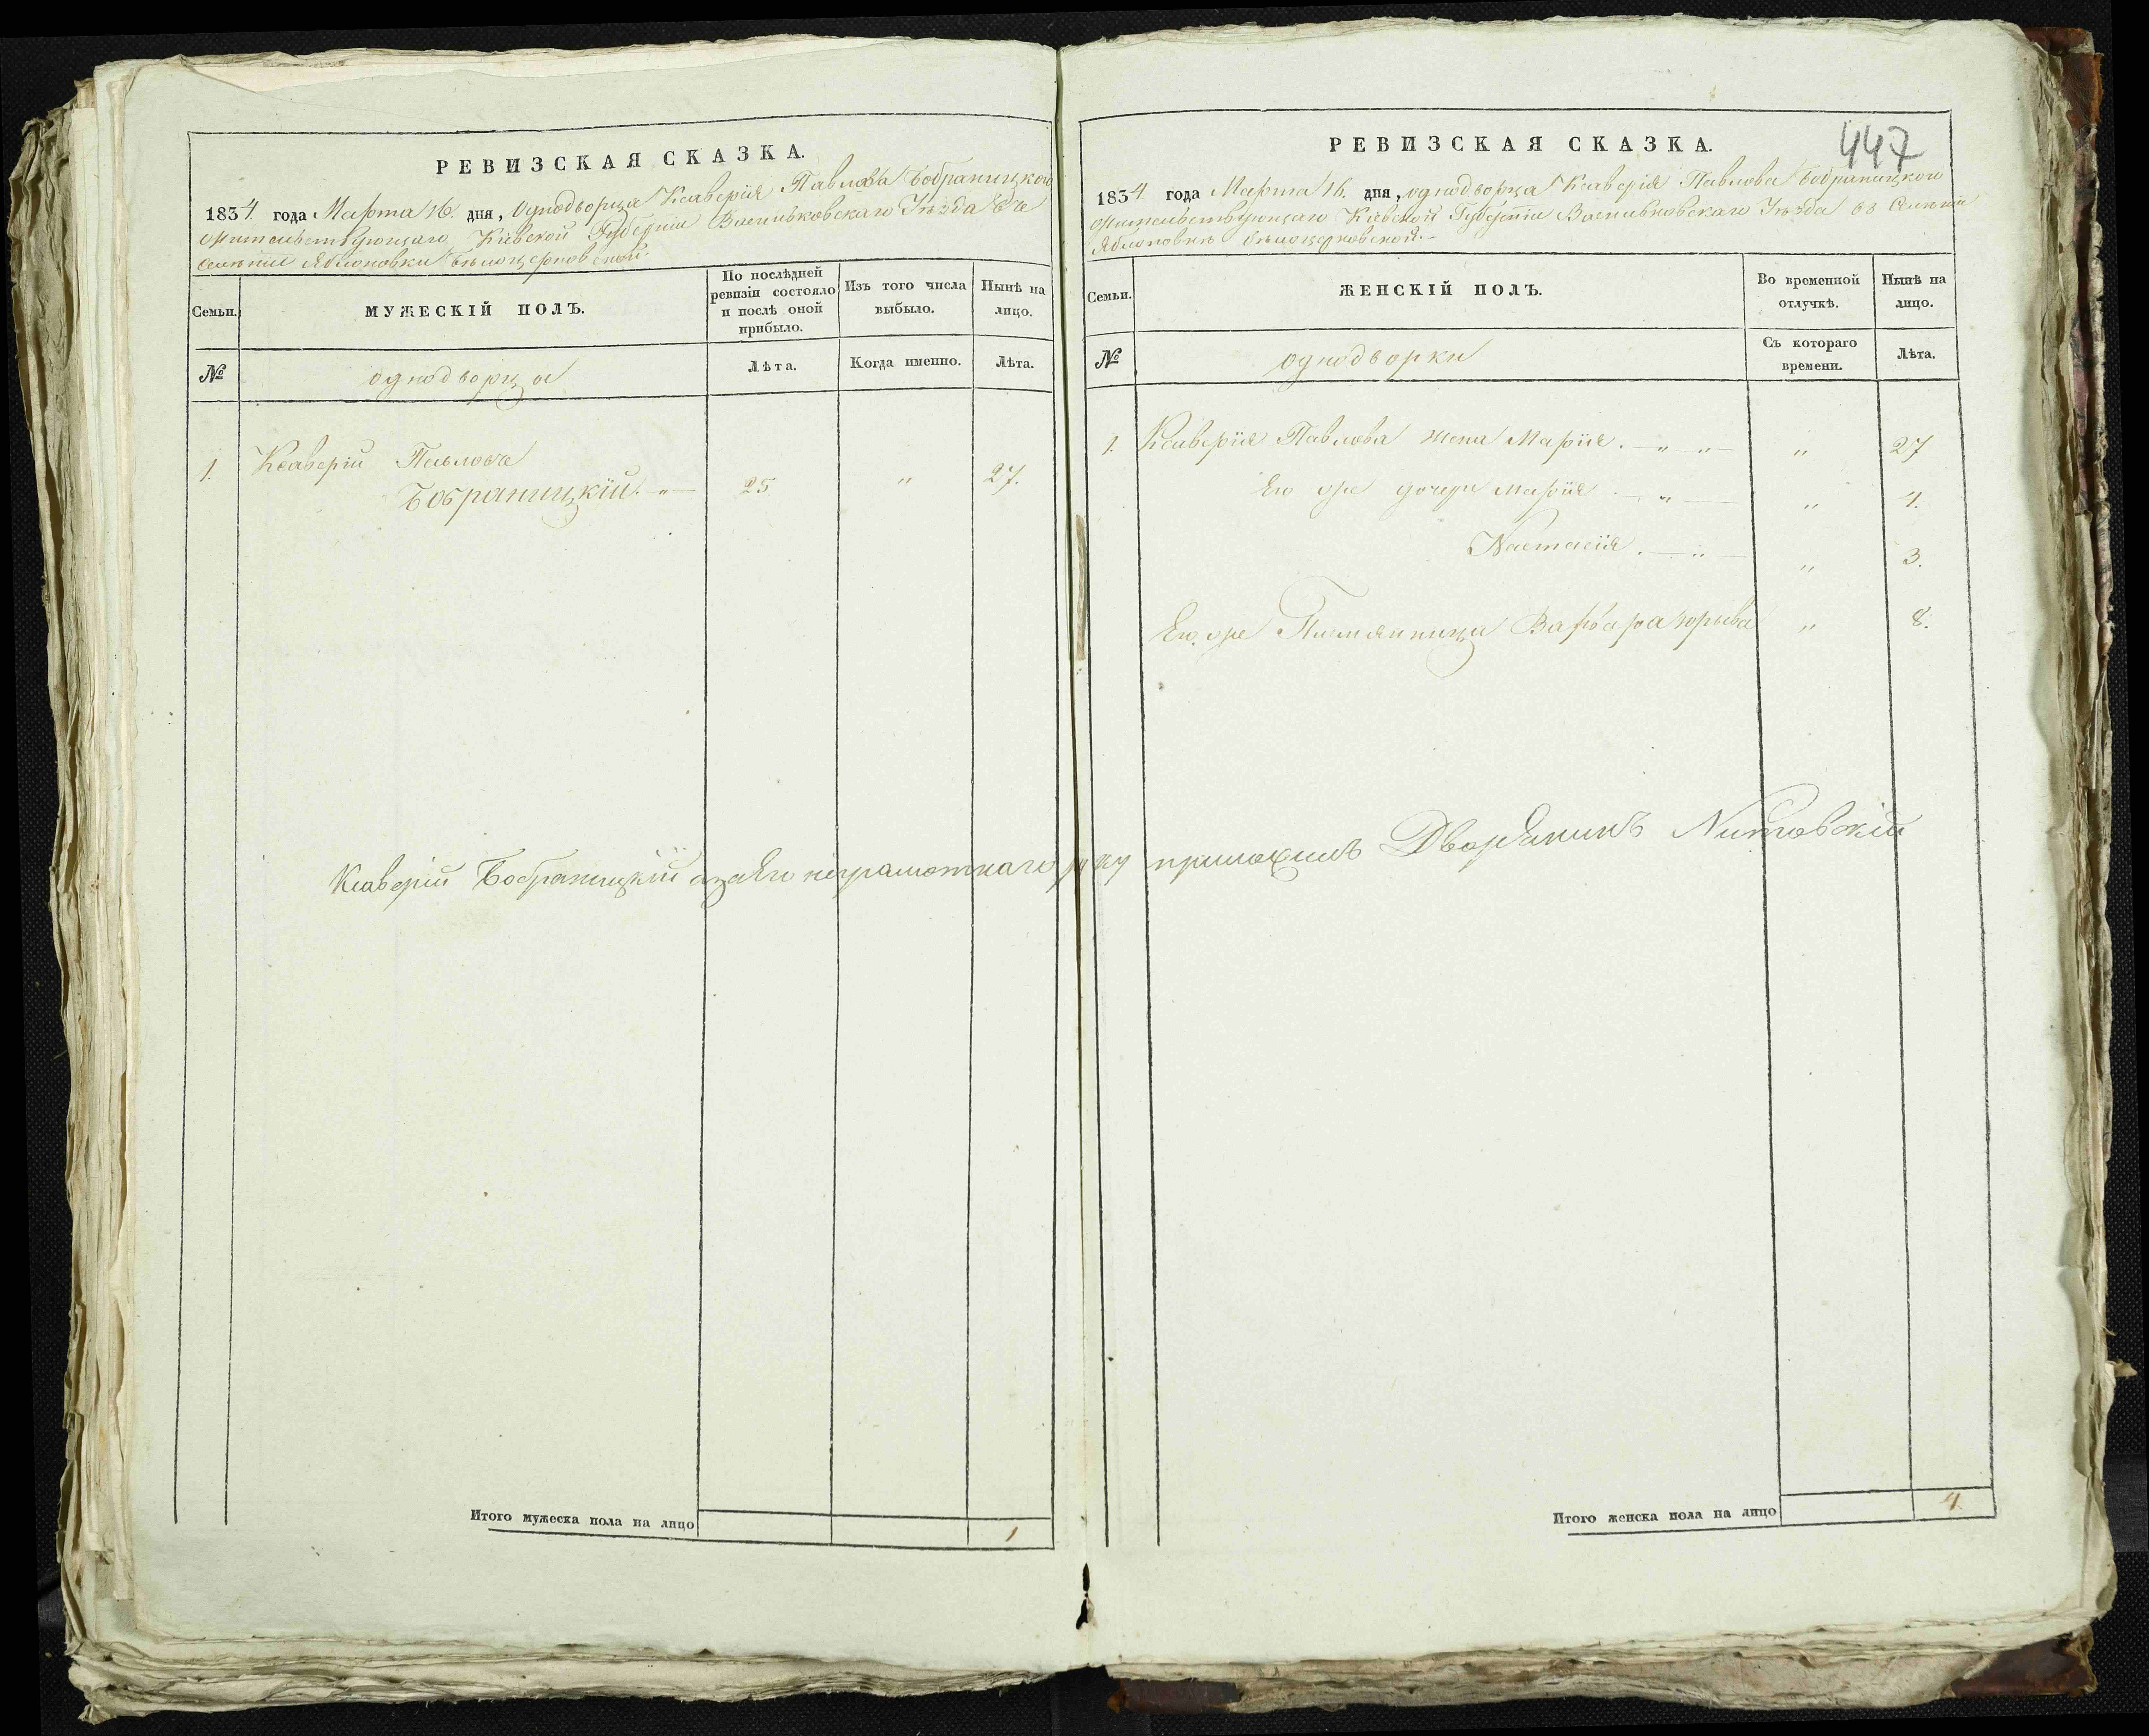 РЕВИЗСКАЯ СКАЗКА.
1834 года Марта 16. дня, Однодворца Ксаверія Павлова Бобраницкого
жительствующаго Кіевской Губерніи Васильковскаго Уѣзда въ
селеніи Яблоновки Бѣлоцерковской.
Семьи.
МУЖЕСКІЙ ПОЛЪ.
По послѣдней ревизіи состояло и послѣ оной прибыло.
Изъ того числа выбыло.
Нынѣ на лицо.
№
однодворцы
Лѣта.
Когда именно.
Лѣта.
1. Ксаверій Павловъ
Бобраницкій. — 25. „ 27.
Итого мужеска пола на лицо 1
447
РЕВИЗСКАЯ СКАЗКА.
1834 года Марта 16. дня, однодворца Ксаверія Павлова Бобраницкого
жительствующаго Кіевской Губерніи Васильковскаго Уѣзда въ Селеніи
Яблоновкѣ бѣлоцерковской.
Семьи.
ЖЕНСКІЙ ПОЛЪ.
Во временной отлучкѣ.
Нынѣ на лицо.
№
однодворки
Съ котораго времени.
Лѣта.
1. Ксаверія Павлова жена Марія. „ 27
Его же дочери Марія „ 4.
Настасія. „ 3.
Его же Племянница Варвара „ 8.
Ксаверій Бобраницкій а за Его неграмотнаго руку приложилъ Дворянинъ
Итого женска пола на лицо 4.